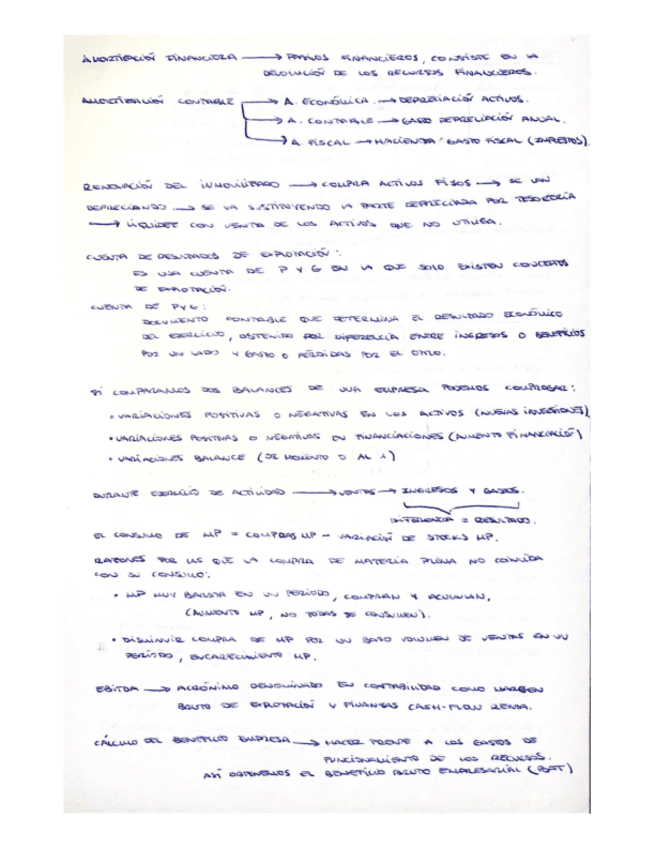 AMORTIZACIÓN FINANCIERA → PASIVOS FINANCIEROS, CONSISTE EN LA
DEVOLUCIÓN DE LOS RECURSOS FINANCIEROS.
AMORTIZACIÓN CONTABLE → A. ECONÓMICA. → DEPRECIACIÓN ACTIVOS.
→ A. CONTABLE → GASTO DEPRECIACIÓN ANUAL.
→ A. FISCAL → HACIENDA GASTO FISCAL (IMPUESTOS)
RENOVACIÓN DEL INMOVILIZADO → COMPRA ACTIVOS FIJOS → SE VAN
DEPRECIANDO → SE VA SUSTITUYENDO LA PARTE DEPRECIADA POR TESORERÍA
→ LIQUIDEZ CON VENTA DE LOS ACTIVOS QUE NO UTILIZA.
CUENTA DE RESULTADOS DE EXPLOTACIÓN:
ES UNA CUENTA DE P Y G EN LA QUE SOLO EXISTEN CONCEPTOS
DE EXPLOTACIÓN.
CUENTA DE PYG:
DOCUMENTO CONTABLE QUE DETERMINA EL RESULTADO ECONÓMICO
DEL EJERCICIO, OBTENIDO POR DIFERENCIA ENTRE INGRESOS O BENEFICIOS
POR UN LADO Y GASTO O PÉRDIDAS POR EL OTRO.
SI COMPARAMOS DOS BALANCES DE UNA EMPRESA PODEMOS COMPROBAR:
• VARIACIONES POSITIVAS O NEGATIVAS EN LOS ACTIVOS (NUEVAS INVERSIONES)
• VARIACIONES POSITIVAS O NEGATIVAS EN FINANCIACIONES (AUMENTO FINANCIACIÓN)
• VARIACIONES BALANCE (DE MOMENTO 0 AL 1)
DURANTE EJERCICIO DE ACTIVIDAD → VENTAS → INGRESOS Y GASTOS.
DIFERENCIA = RESULTADO.
EL CONSUMO DE MP = COMPRAS MP - VARIACIÓN DE STOCKS MP.
RAZONES POR LAS QUE LA COMPRA DE MATERIA PRIMA NO COINCIDA
CON SU CONSUMO:
• MP MUY BARATA EN UN PERÍODO, COMPRAN Y ACUMULAN,
(AUMENTO MP, NO TODAS SE CONSUMEN).
• DISMINUIR COMPRA DE MP POR UN BAJO VOLUMEN DE VENTAS EN UN
PERÍODO, ENCARECIMIENTO MP.
EBITDA → ACRÓNIMO DENOMINADO EN CONTABILIDAD COMO MARGEN
BRUTO DE EXPLOTACIÓN Y FINANZAS CASH-FLOW RENTA.
CÁLCULO DEL BENEFICIO EMPRESA → HACER FRENTE A LOS GASTOS DE
FUNCIONAMIENTO DE LOS RECURSOS.
ASÍ OBTENEMOS EL BENEFICIO BRUTO EMPRESARIAL (BAT)